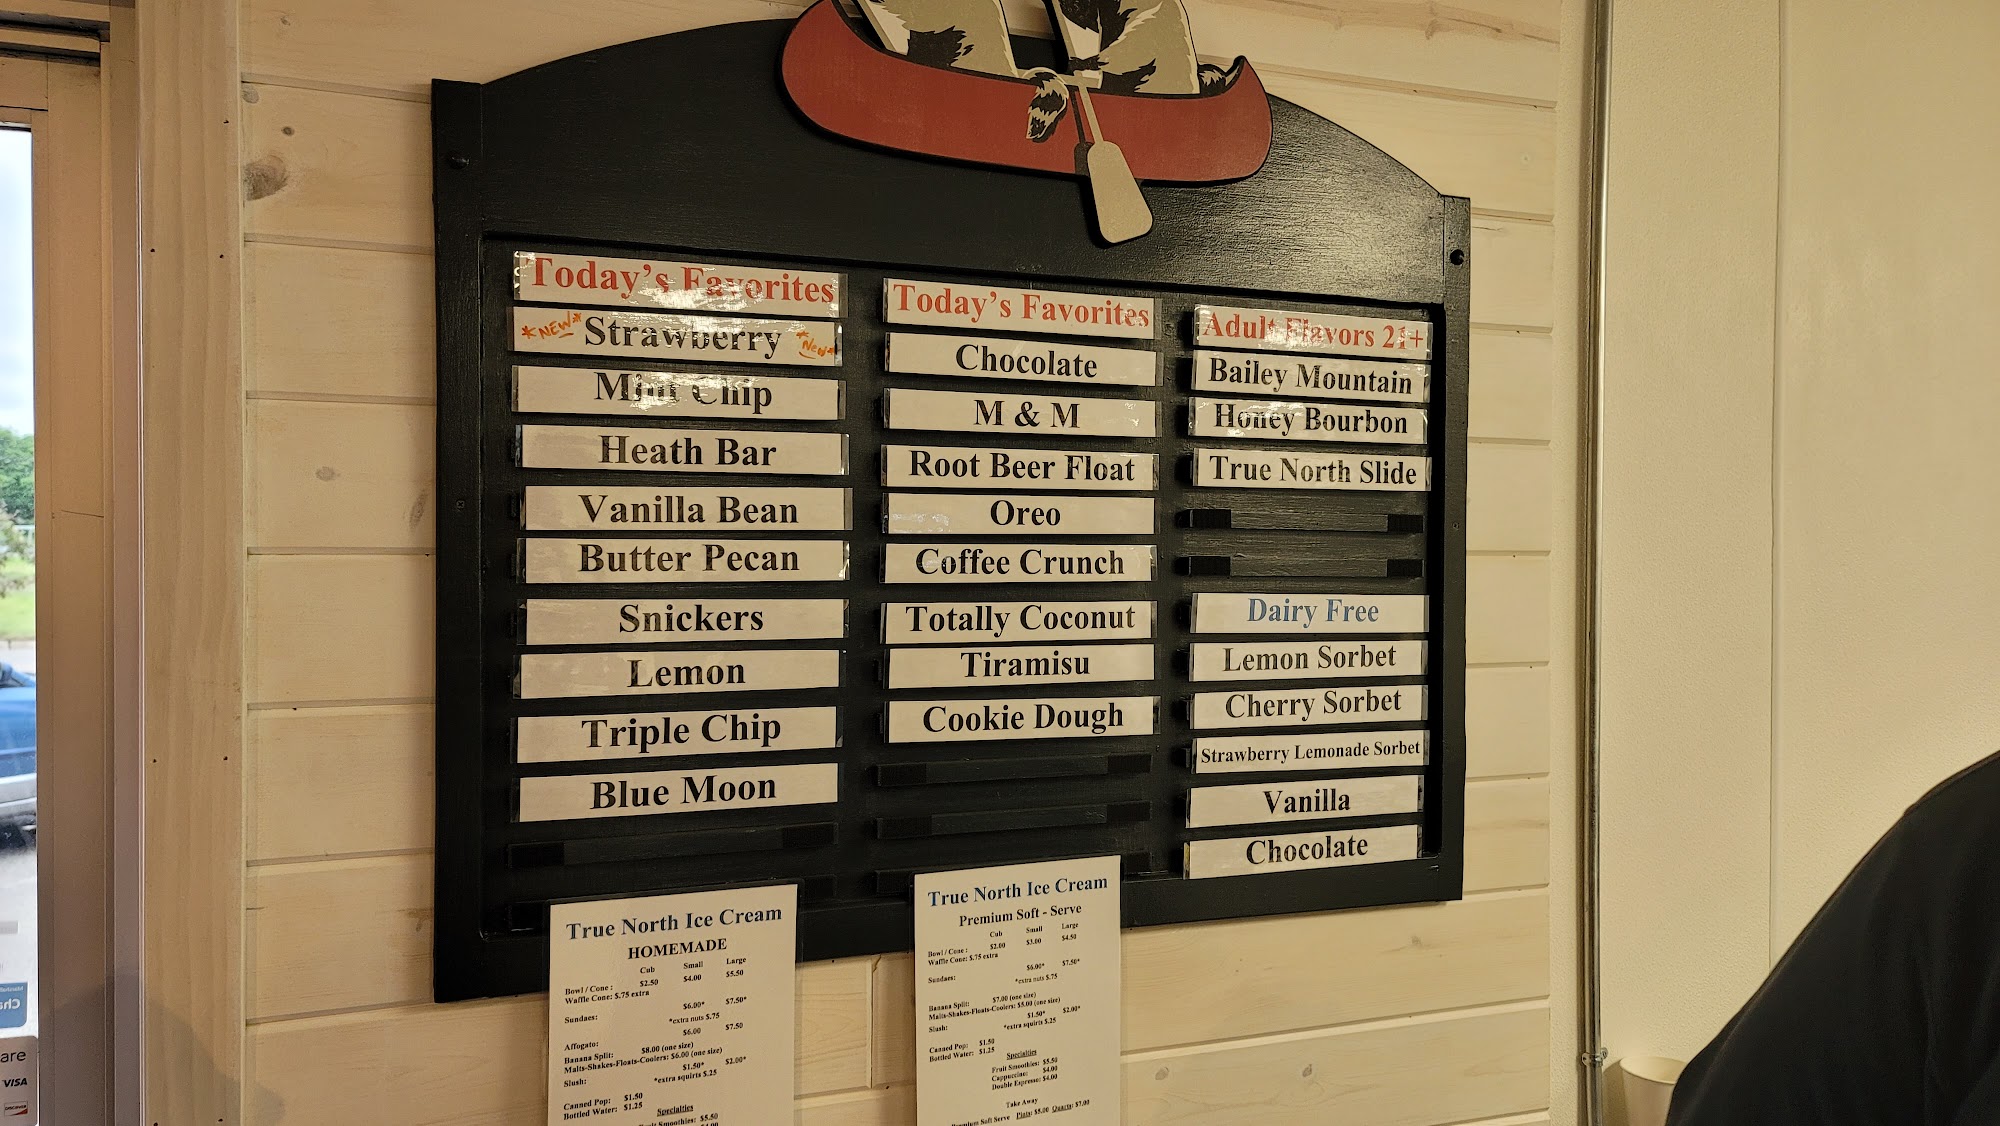 Today's Favorites
*NEW* Strawberry *New*
Mint Chip
Heath Bar
Vanilla Bean
Butter Pecan
Snickers
Lemon
Triple Chip
Blue Moon
Today's Favorites
Chocolate
M & M
Root Beer Float
Oreo
Coffee Crunch
Totally Coconut
Tiramisu
Cookie Dough
Adult Flavors 21+
Bailey Mountain
Honey Bourbon
True North Slide
Dairy Free
Lemon Sorbet
Cherry Sorbet
Strawberry Lemonade Sorbet
Vanilla
Chocolate
True North Ice Cream
HOMEMADE
Cub Small Large
Bowl / Cone : $2.50 $4.00 $5.50
Waffle Cone: $.75 extra
Sundaes: $6.00* $7.50*
*extra nuts $.75
Affogato: $6.00 $7.50
Banana Split: $8.00 (one size)
Malts-Shakes-Floats-Coolers: $6.00 (one size)
Slush: $1.50* $2.00*
*extra squirts $.25
Canned Pop: $1.50
Bottled Water: $1.25
Specialties
Fruit Smoothies: $5.50
$4.00
True North Ice Cream
Premium Soft - Serve
Cub Small Large
Bowl / Cone : $2.00 $3.00 $4.50
Waffle Cone: $.75 extra
Sundaes: $6.00* $7.50*
*extra nuts $.75
Banana Split: $7.00 (one size)
Malts-Shakes-Floats-Coolers: $5.00 (one size)
Slush: $1.50* $2.00*
*extra squirts $.25
Canned Pop: $1.50
Bottled Water: $1.25
Specialties
Fruit Smoothies: $5.50
Cappuccino: $4.00
Double Espresso: $4.00
Take Away
Premium Soft Serve Pints: $5.00 Quarts: $7.00
are
VISA
DISCOVER